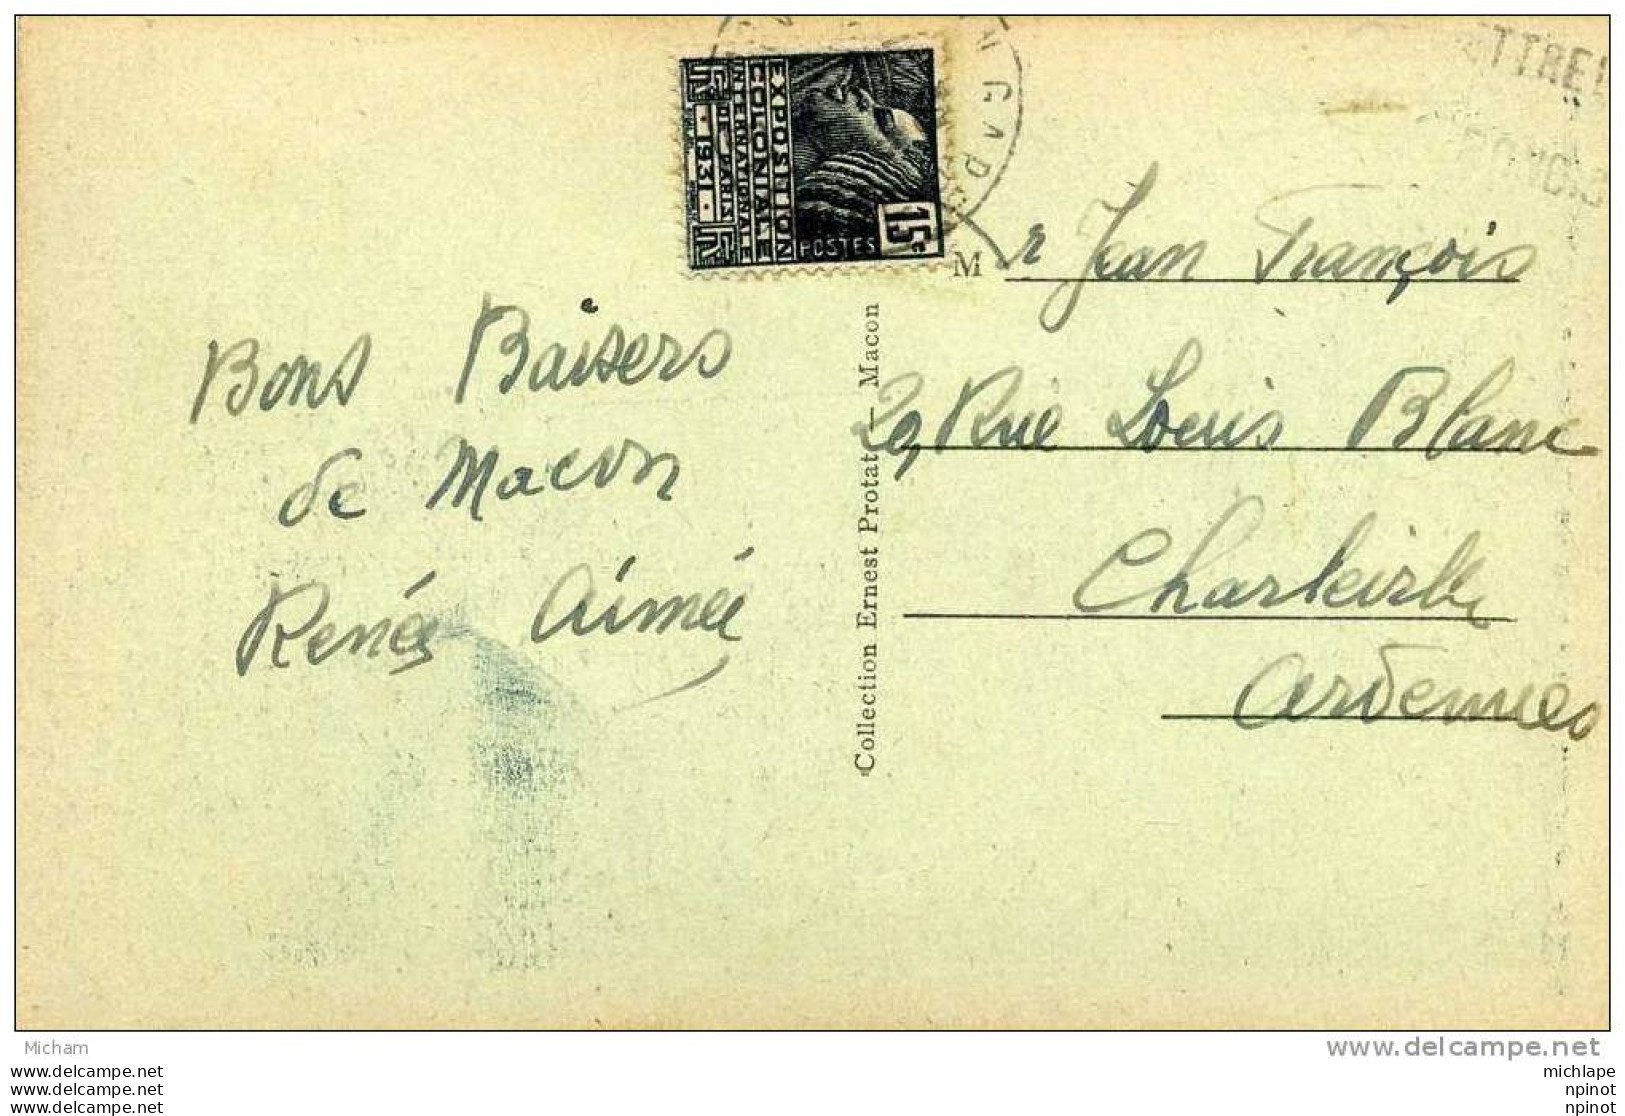 EXPOSITION
COLONIALE
INTERNATIONALE
DE PARIS
1931
POSTES
15c
GARE
TTRE
Bons Baisers
de Macon
Renée Aimée
Collection Ernest Protat — Macon
Mr Jean François
29, Rue Louis Blanc
Charleville
Ardennes
Micham
www.delcampe.net
www.delcampe.net
www.delcampe.net
www.delcampe.net
michlape
npinot
npinot